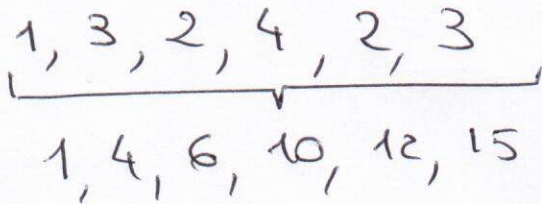 1, 3, 2, 4, 2, 3
1, 4, 6, 10, 12, 15